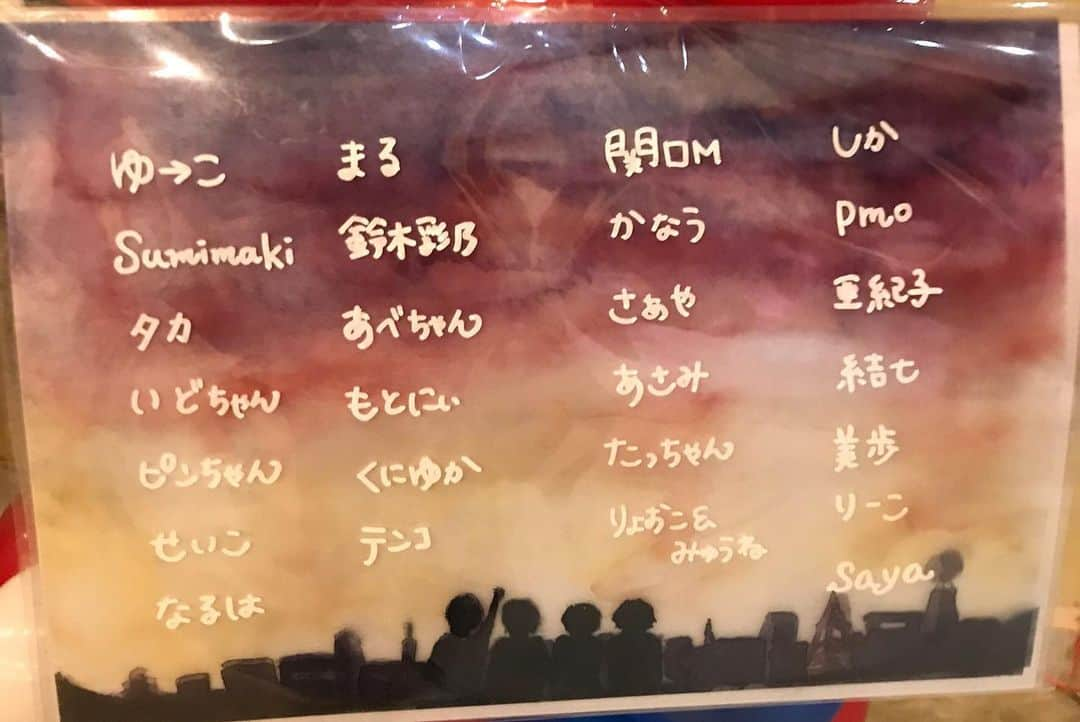 ゆ→こ
Sumimaki
タカ
いどちゃん
ピンちゃん
せいこ
なるは
まる
鈴木彩乃
あべちゃん
もとにぃ
くにゆか
テンコ
関口M
かなう
さぁや
あさみ
たっちゃん
りょおこ&
みゅうね
しか
Pmo
亜紀子
結七
美歩
りーこ
Saya